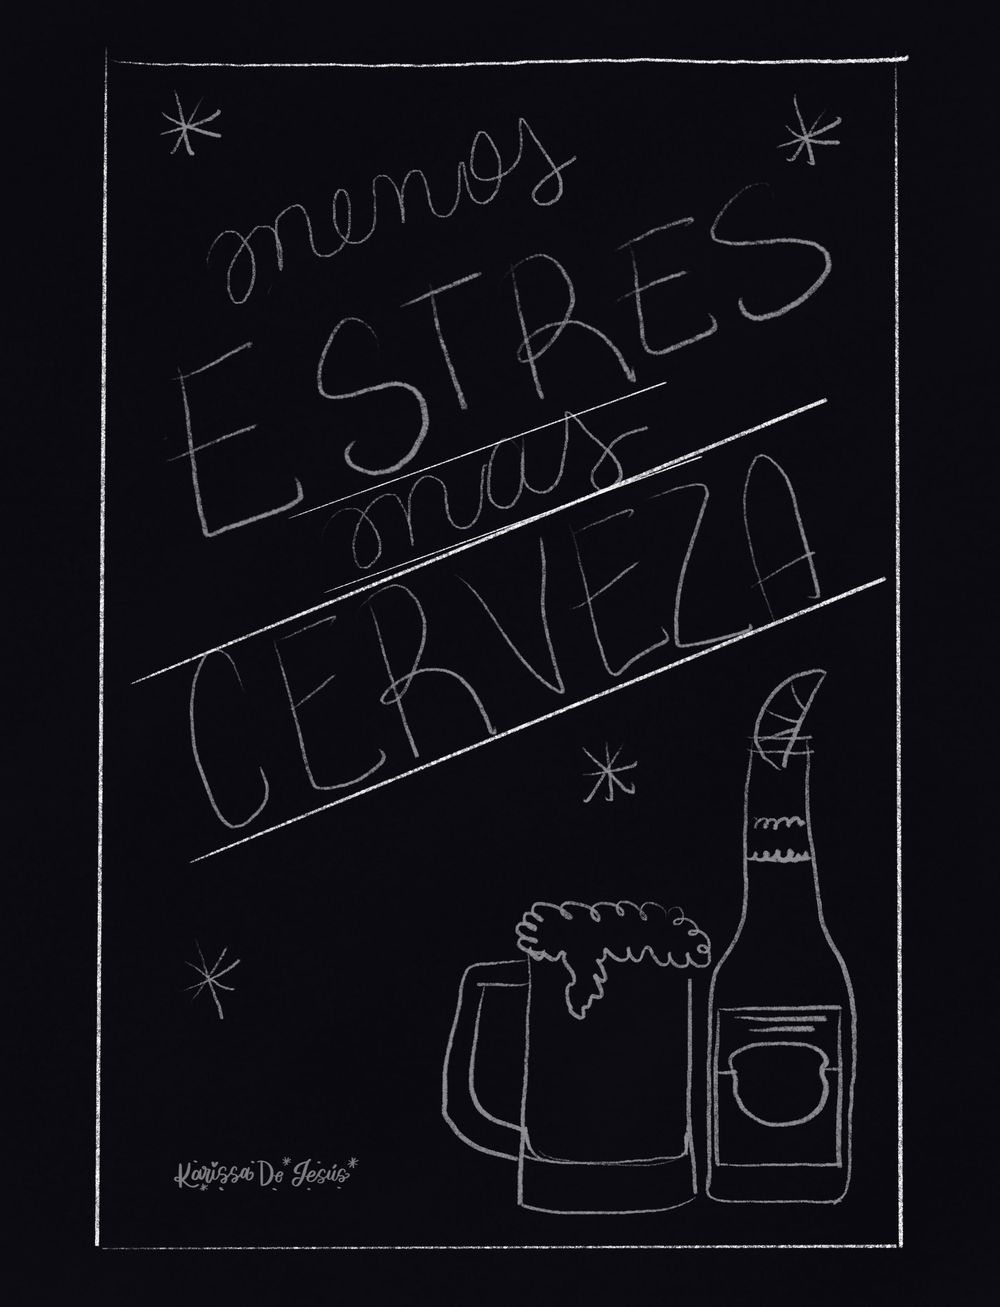 menos
ESTRES
mas
CERVEZA
Karissa De Jesús